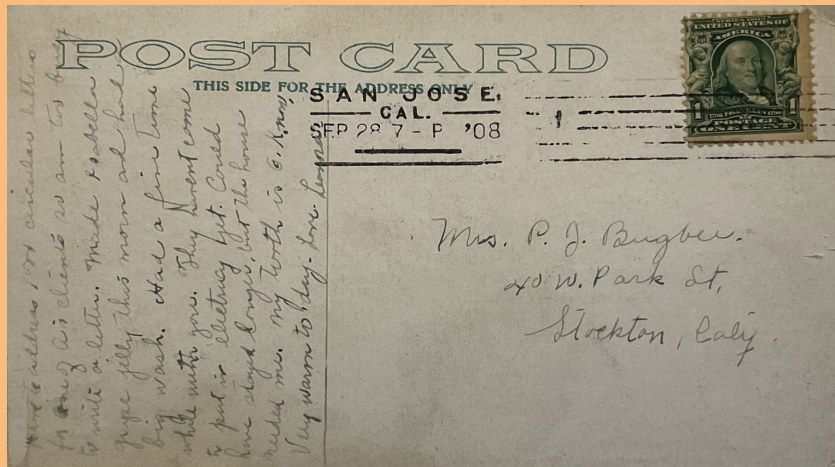 POST CARD
THIS SIDE FOR THE ADDRESS ONLY
SAN JOSE,
CAL.
SEP 28 7-P '08
1
SERIES 1902
UNITED STATES OF
AMERICA
1 1
POSTAGE
ONE CENT
Mrs. P. J. Bugbee.
40 W. Park St,
Stockton, Calif.
address 100 circular this
for one of his clients so am too busy
to write a letter. Made Isabella
grape jelly this morn ad had
big wash. Had a fine time
while with you. They havent come
to put in electricity yet. Could
have stayed longer, but the house
needed me. My tooth is O.K. now.
Very warm to-day. Love